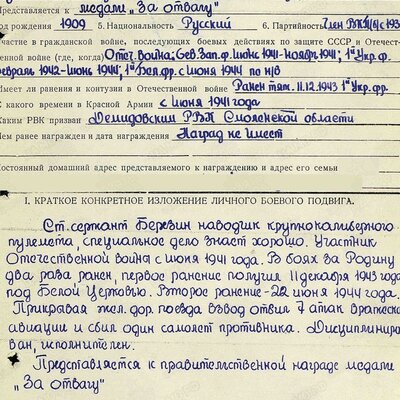 Представляется к медали „За отвагу"
од рождения 1909 5. Национальность Русский 6. Партийность Член ВКП(б) с 193
частие в гражданской войне, последующих боевых действиях по защите СССР и Отечест-
енной войне (где, когда) Отеч. война; Сев. Зап. ф. июнь 1941-ноябрь 1941; 1й Укр. фр.
февраль 1942-июнь 1944; 1й Бел. фр. с июня 1944 по н/в
меет ли ранения и контузии в Отечественной войне Ранен тяж. 11.12.1943 1й Укр. фр.
какого времени в Красной Армии с июня 1941 года
Каким РВК призван Демидовским РВК Смоленской области
Чем ранее награжден и дата награждения Наград не имеет
Постоянный домашний адрес представляемого к награждению и адрес его семьи
I. КРАТКОЕ КОНКРЕТНОЕ ИЗЛОЖЕНИЕ ЛИЧНОГО БОЕВОГО ПОДВИГА.
Ст. сержант Березин наводчик крупнокалиберного
пулемета, специальное дело знает хорошо. Участник
Отечественной войны с июня 1941 года. В боях за Родину
два раза ранен, первое ранение получил 11 декабря 1943 года
под Белой Церковью. Второе ранение-22 июня 1944 года.
Прикрывая жел. дор. поезда взвод отбил 7 атак вражеско
авиации и сбил один самолет противника. Дисциплиниро
ван, исполнителен.
Представляется к правительственной награде медали
„За отвагу"